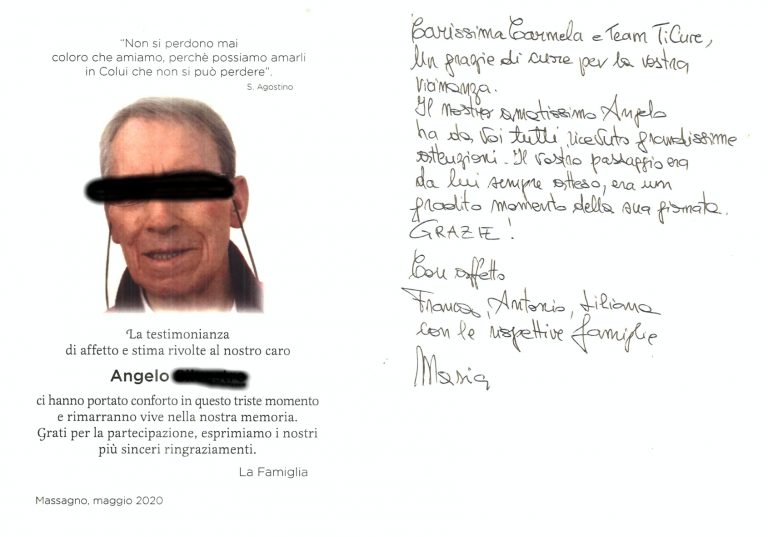 “Non si perdono mai
coloro che amiamo, perchè possiamo amarli
in Colui che non si può perdere”.
S. Agostino
La testimonianza
di affetto e stima rivolte al nostro caro
Angelo
ci hanno portato conforto in questo triste momento
e rimarranno vive nella nostra memoria.
Grati per la partecipazione, esprimiamo i nostri
più sinceri ringraziamenti.
La Famiglia
Massagno, maggio 2020
Carissima Carmela e Team TiCure,
Un grazie di cuore per la vostra
vicinanza.
Il nostro amatissimo Angelo
ha da voi tutti, ricevuto grandissime
attenzioni. Il vostro passaggio era
da lui sempre atteso, era un
gradito momento della sua giornata.
GRAZIE!
Con affetto
Antonio, Liliana
con le rispettive famiglie
Maria